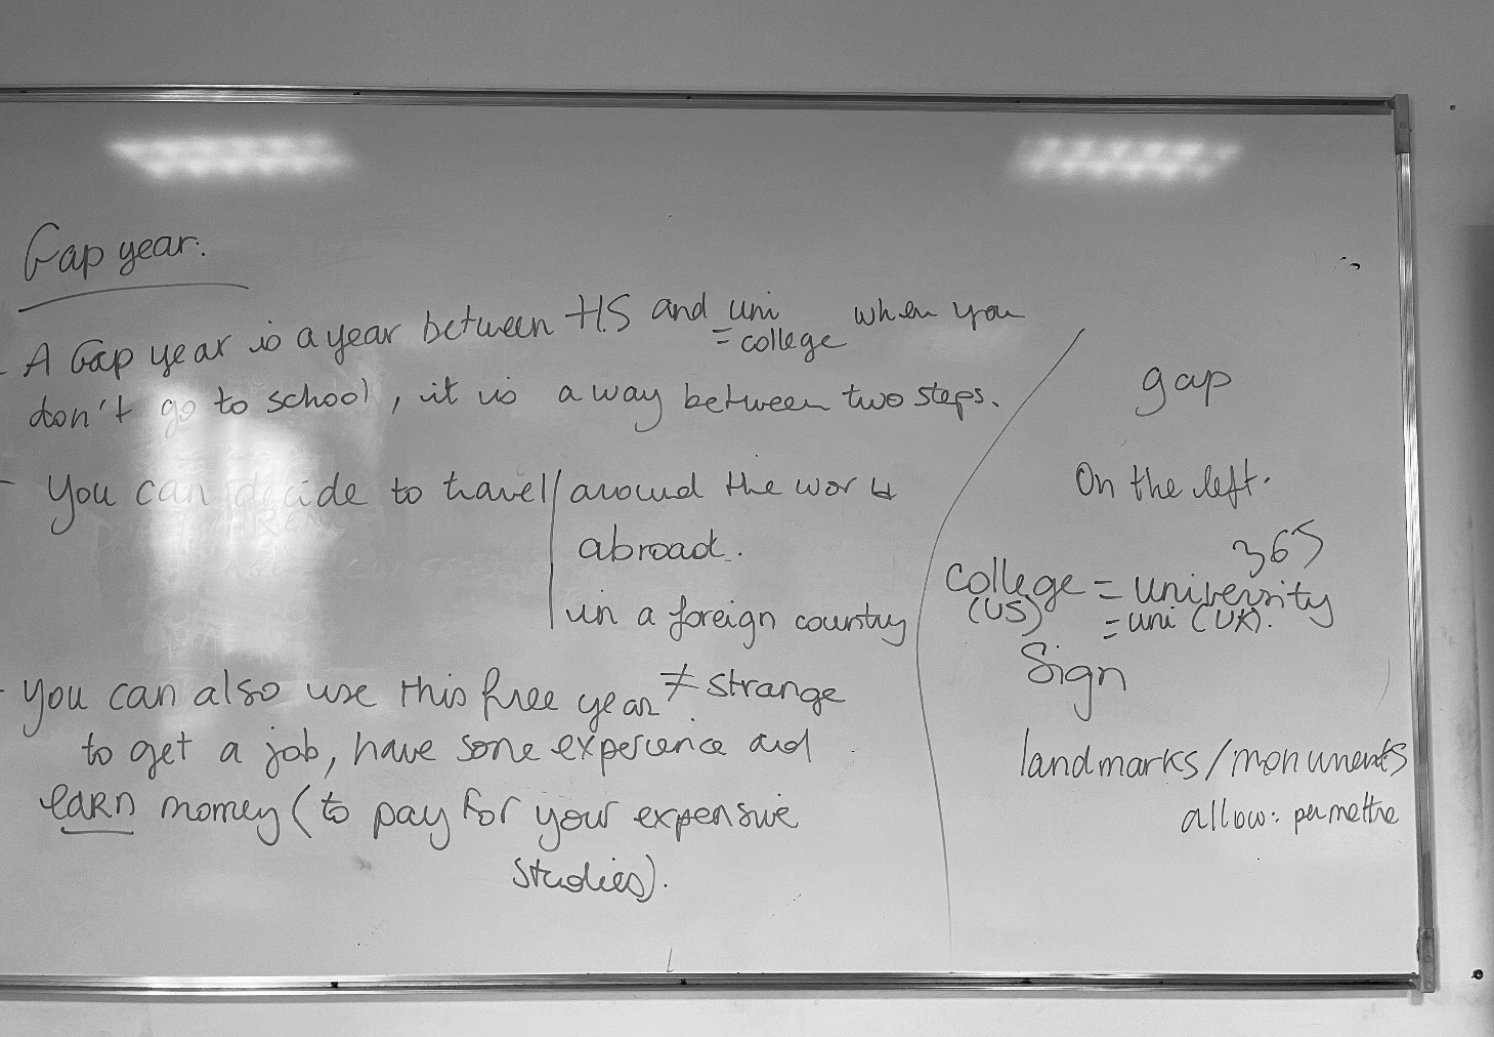 Gap year.
- A Gap year is a year between H.S and uni when you
= college
don't go to school, it is a way between two steps.
- You can decide to travel / around the world
abroad.
in a foreign country
- you can also use this free year ≠ strange
to get a job, have some experience and
earn money (to pay for your expensive
studies).
gap
On the left.
365
college = university
(US) = uni (UK).
Sign
landmarks/monuments
allow: permettre